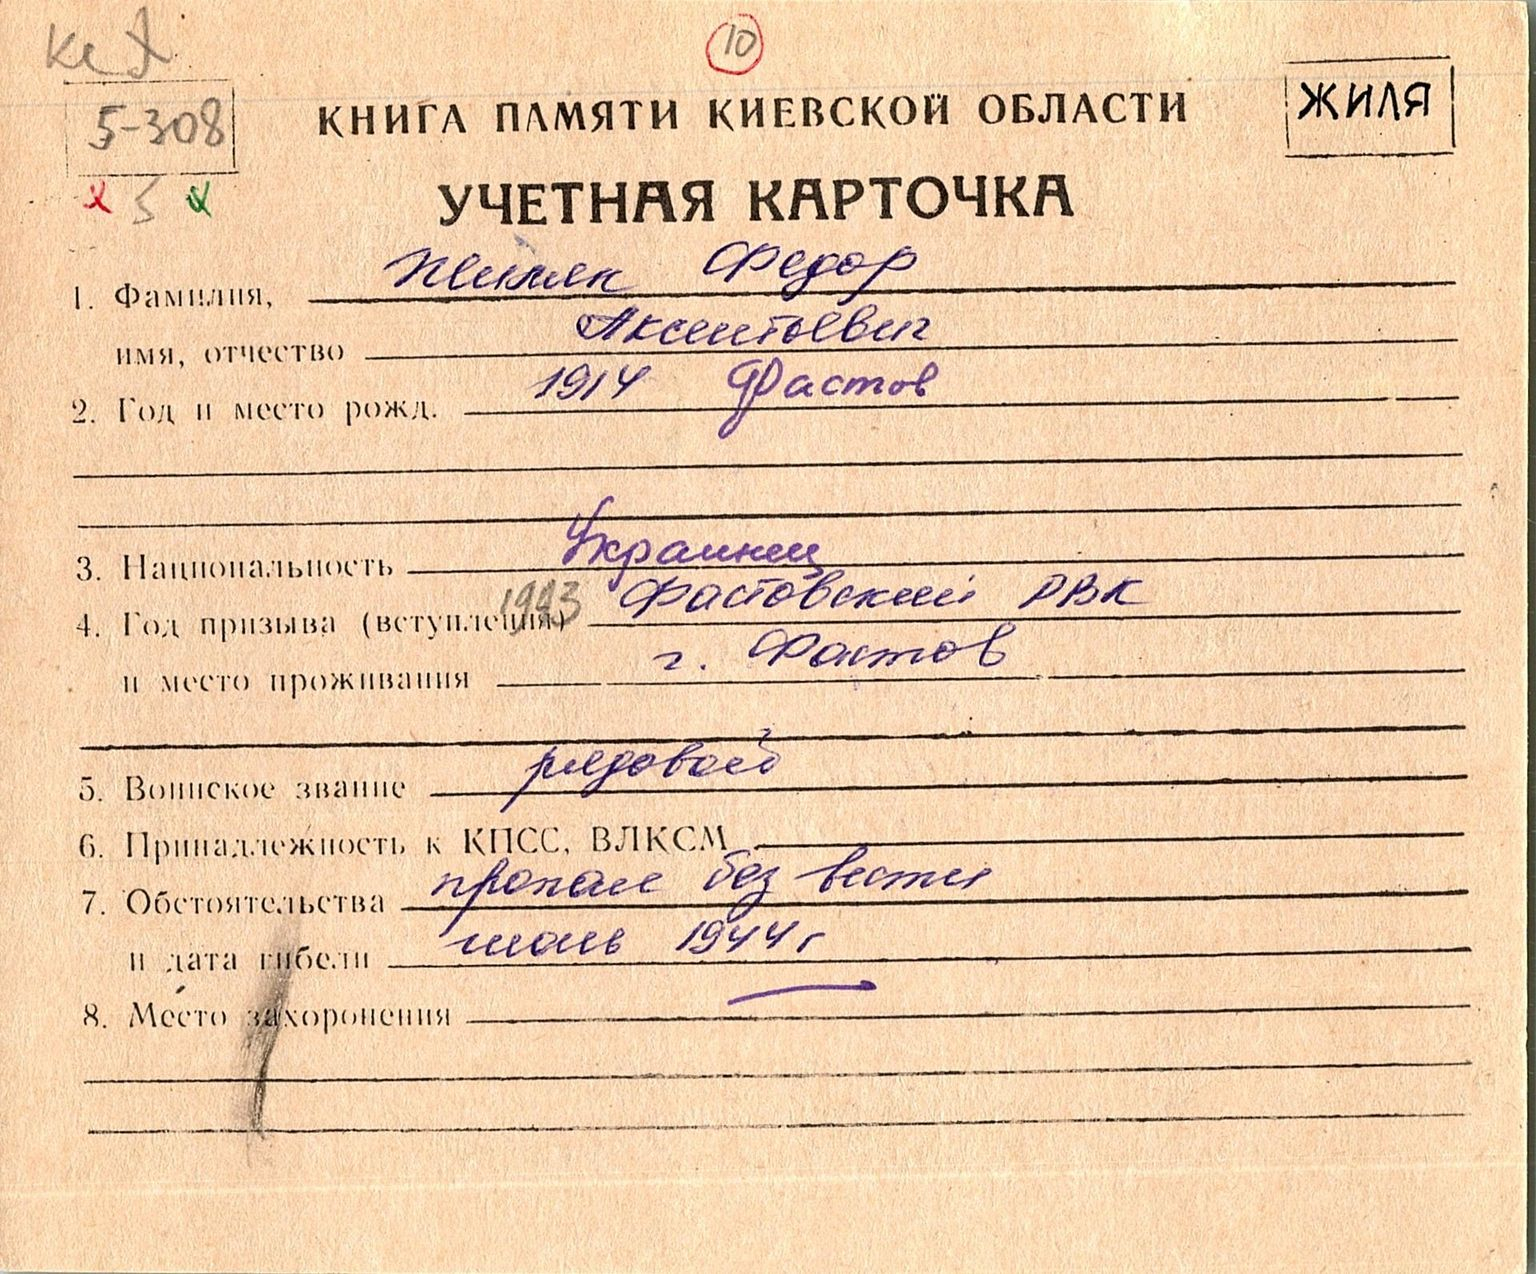 10
5-308
КНИГА ПАМЯТИ КИЕВСКОЙ ОБЛАСТИ
ЖИЛЯ
5
УЧЕТНАЯ КАРТОЧКА
1. Фамилия, Жиляк Федор
имя, отчество Аксентьевич
2. Год и место рожд. 1914 Фастов
3. Национальность Украинец
4. Год призыва (вступления) 1943 Фастовский РВК
и место проживания г. Фастов
5. Воинское звание рядовой
6. Принадлежность к КПСС, ВЛКСМ
7. Обстоятельства пропал без вести
и дата гибели июль 1944 г
8. Место захоронения